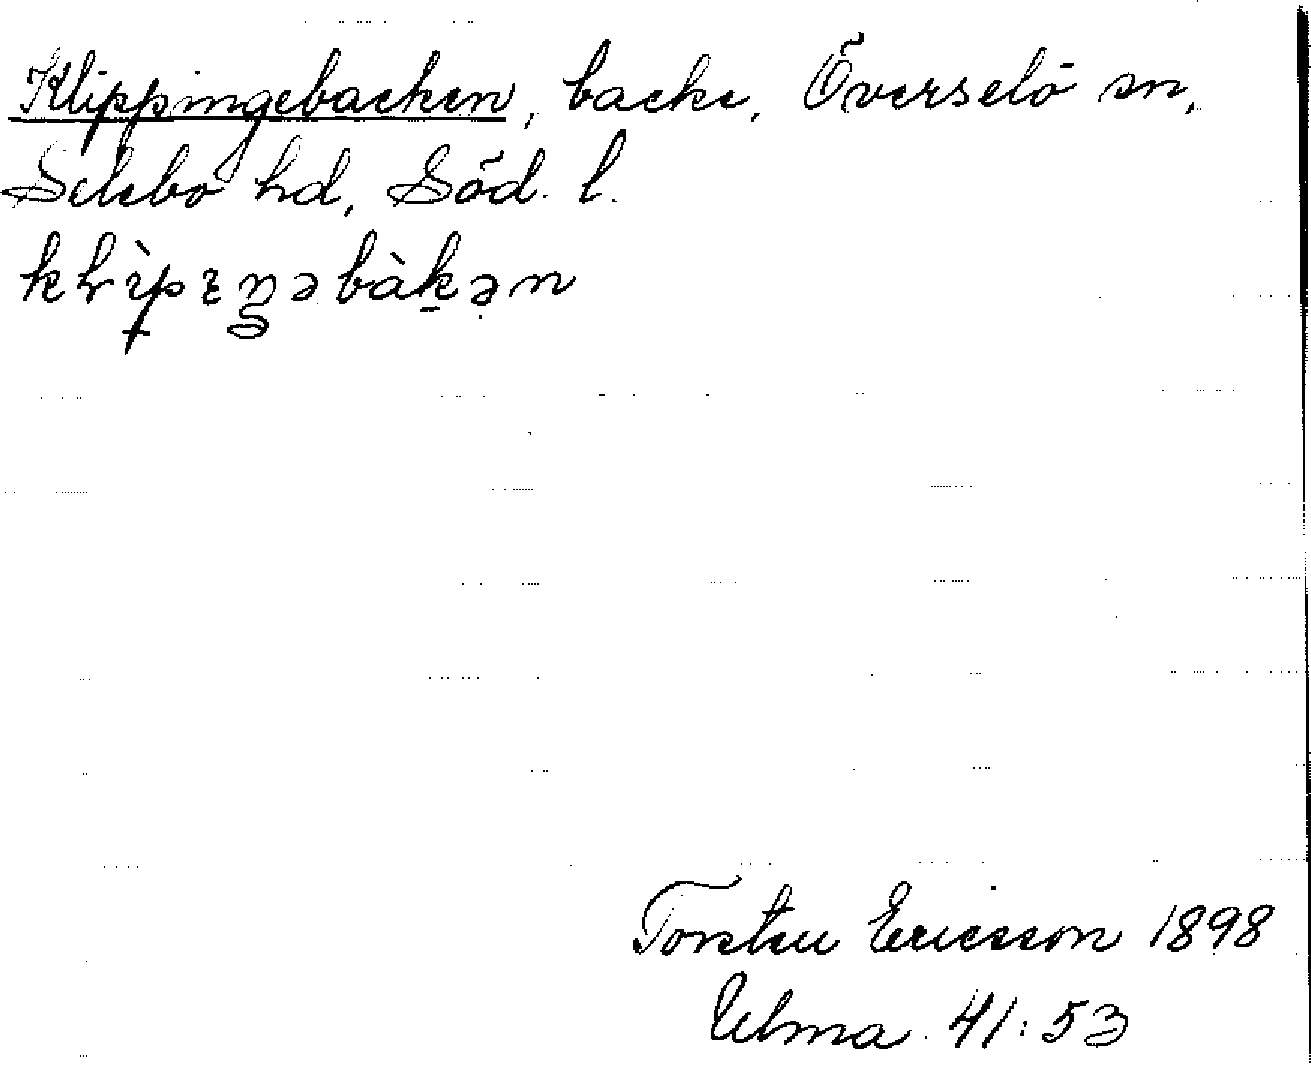 Klippingebacken, backe, Överselö sn,
Selebo hd, Söd. l.
Torsten Ericsson 1898
Ulma 41:53